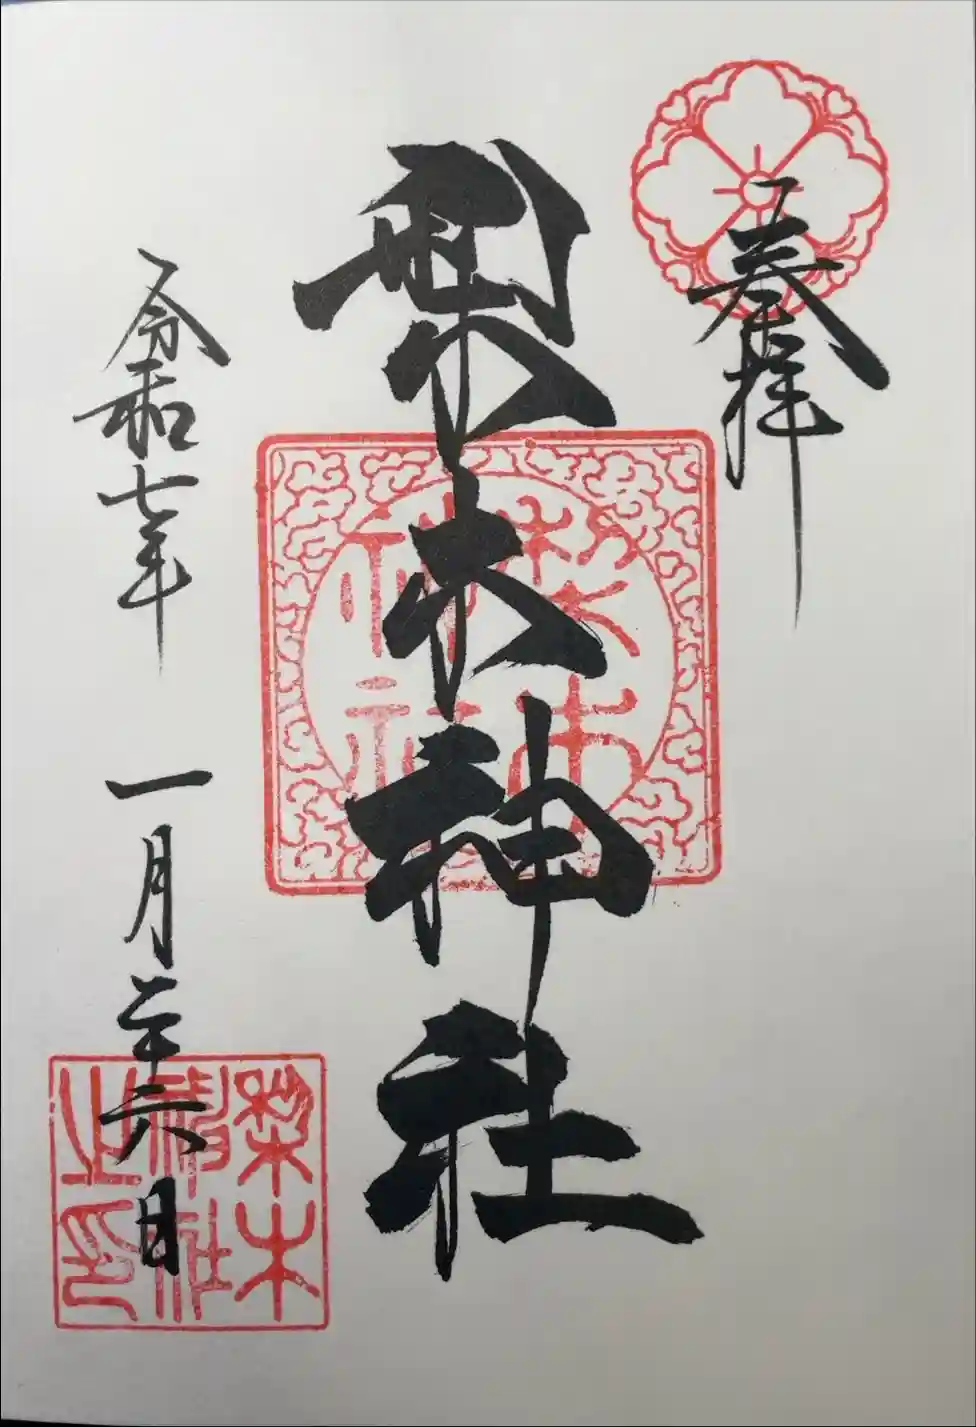 奉拝
梨木神社
令和七年 一月二十六日
梨木神社
梨木神社之印